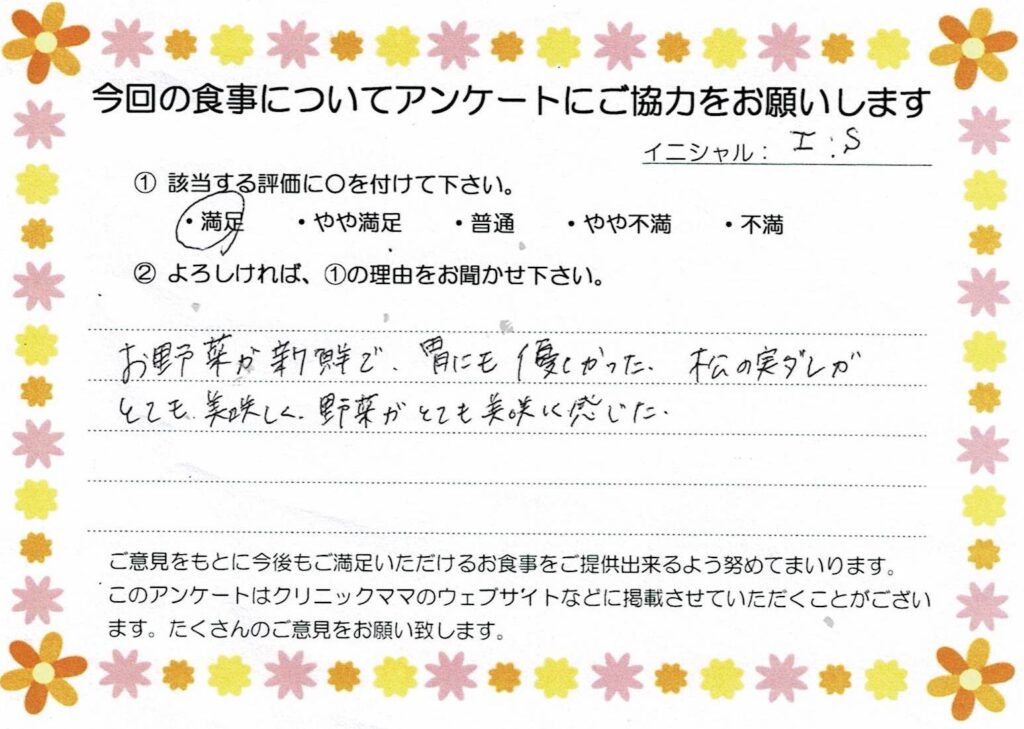 今回の食事についてアンケートにご協力をお願いします
イニシャル： I.S
① 該当する評価に〇を付けて下さい。
・満足 ・やや満足 ・普通 ・やや不満 ・不満
② よろしければ、①の理由をお聞かせ下さい。
お野菜が新鮮で、胃にも優しかった。松の実ダレが
とても美味しく、野菜がとても美味しく感じた。
ご意見をもとに今後もご満足いただけるお食事をご提供出来るよう努めてまいります。
このアンケートはクリニックママのウェブサイトなどに掲載させていただくことがござい
ます。たくさんのご意見をお願い致します。